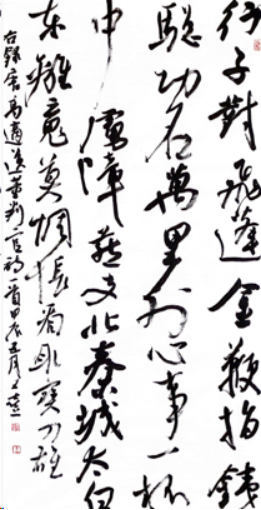 行子對飛蓬金鞭指鐵
驄功名萬里外心事一杯
中虜障燕支北秦城太白
東離魂莫惆悵看取寶刀雄
右錄唐高適送李判官詩一首甲辰五月